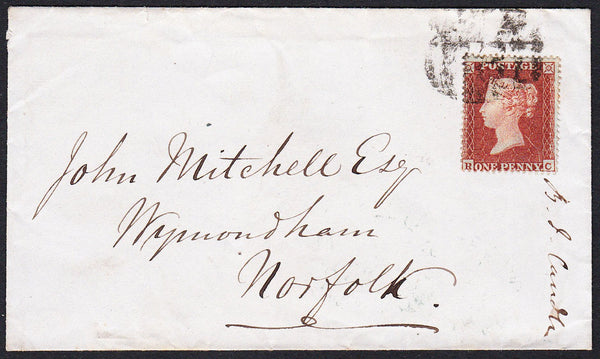 POSTAGE
ONE PENNY
R C
John Mitchell Esq
Wymondham
Norfolk.